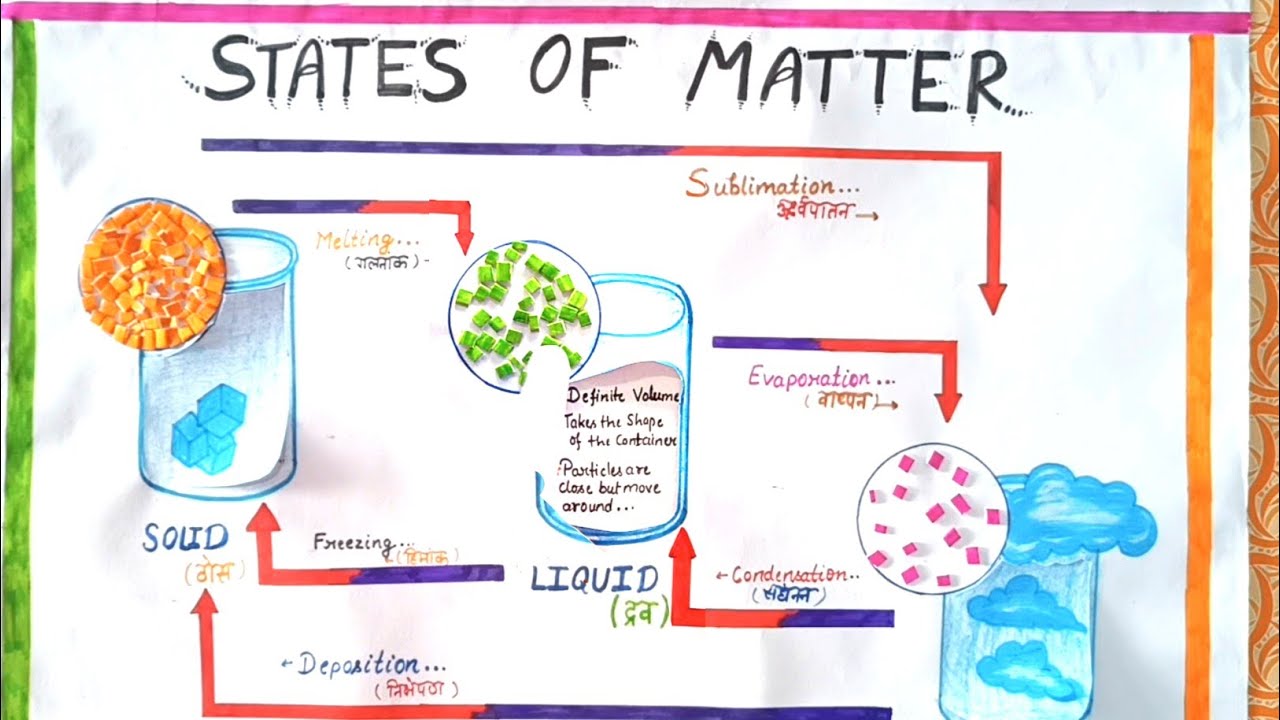 STATES OF MATTER
Sublimation...
Melting...
(गलनांक)
Evaporation...
(वाष्पन)
Definite Volume
Takes the Shape
of the Container
Particles are
close but move
around...
SOLID
(ठोस)
Freezing...
(हिमांक)
LIQUID
(द्रव)
Condensation..
(संघनन)
Deposition...